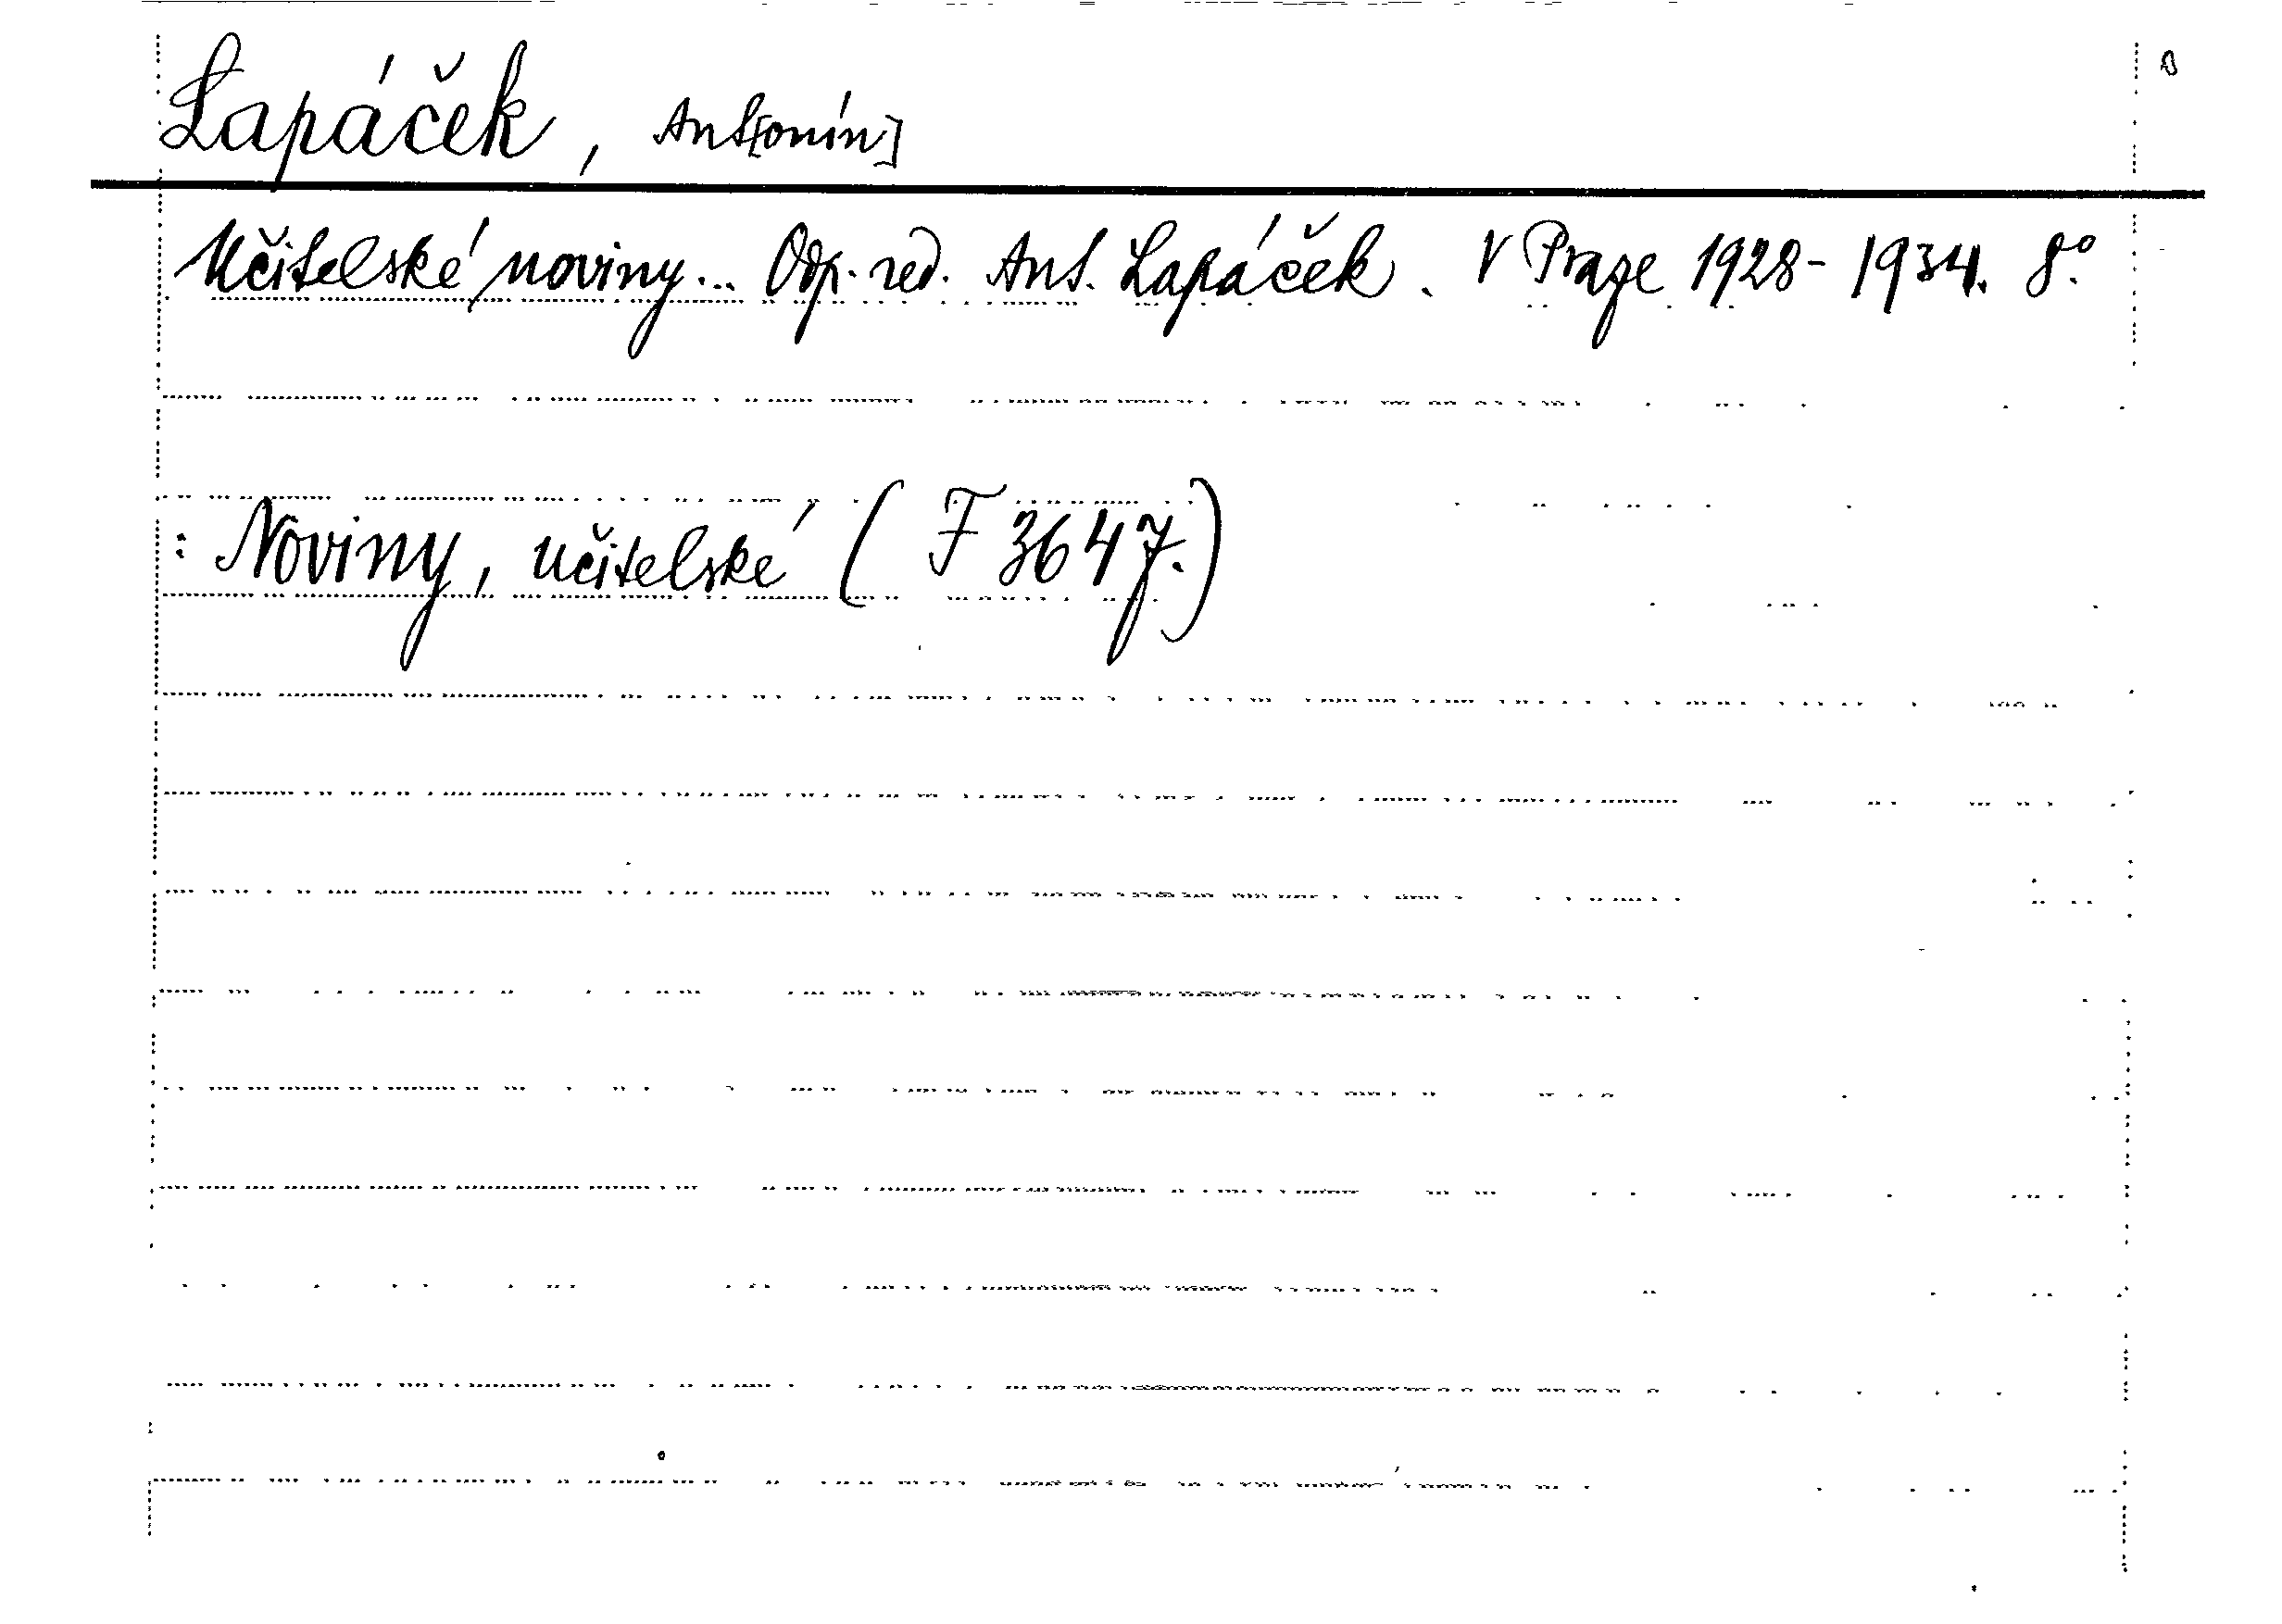 Lapáček, Ant[onín]
Učitelské noviny... Odp. red. Ant. Lapáček. V Praze 1928-1934. 8.°
: Noviny, učitelské (F 3647.)